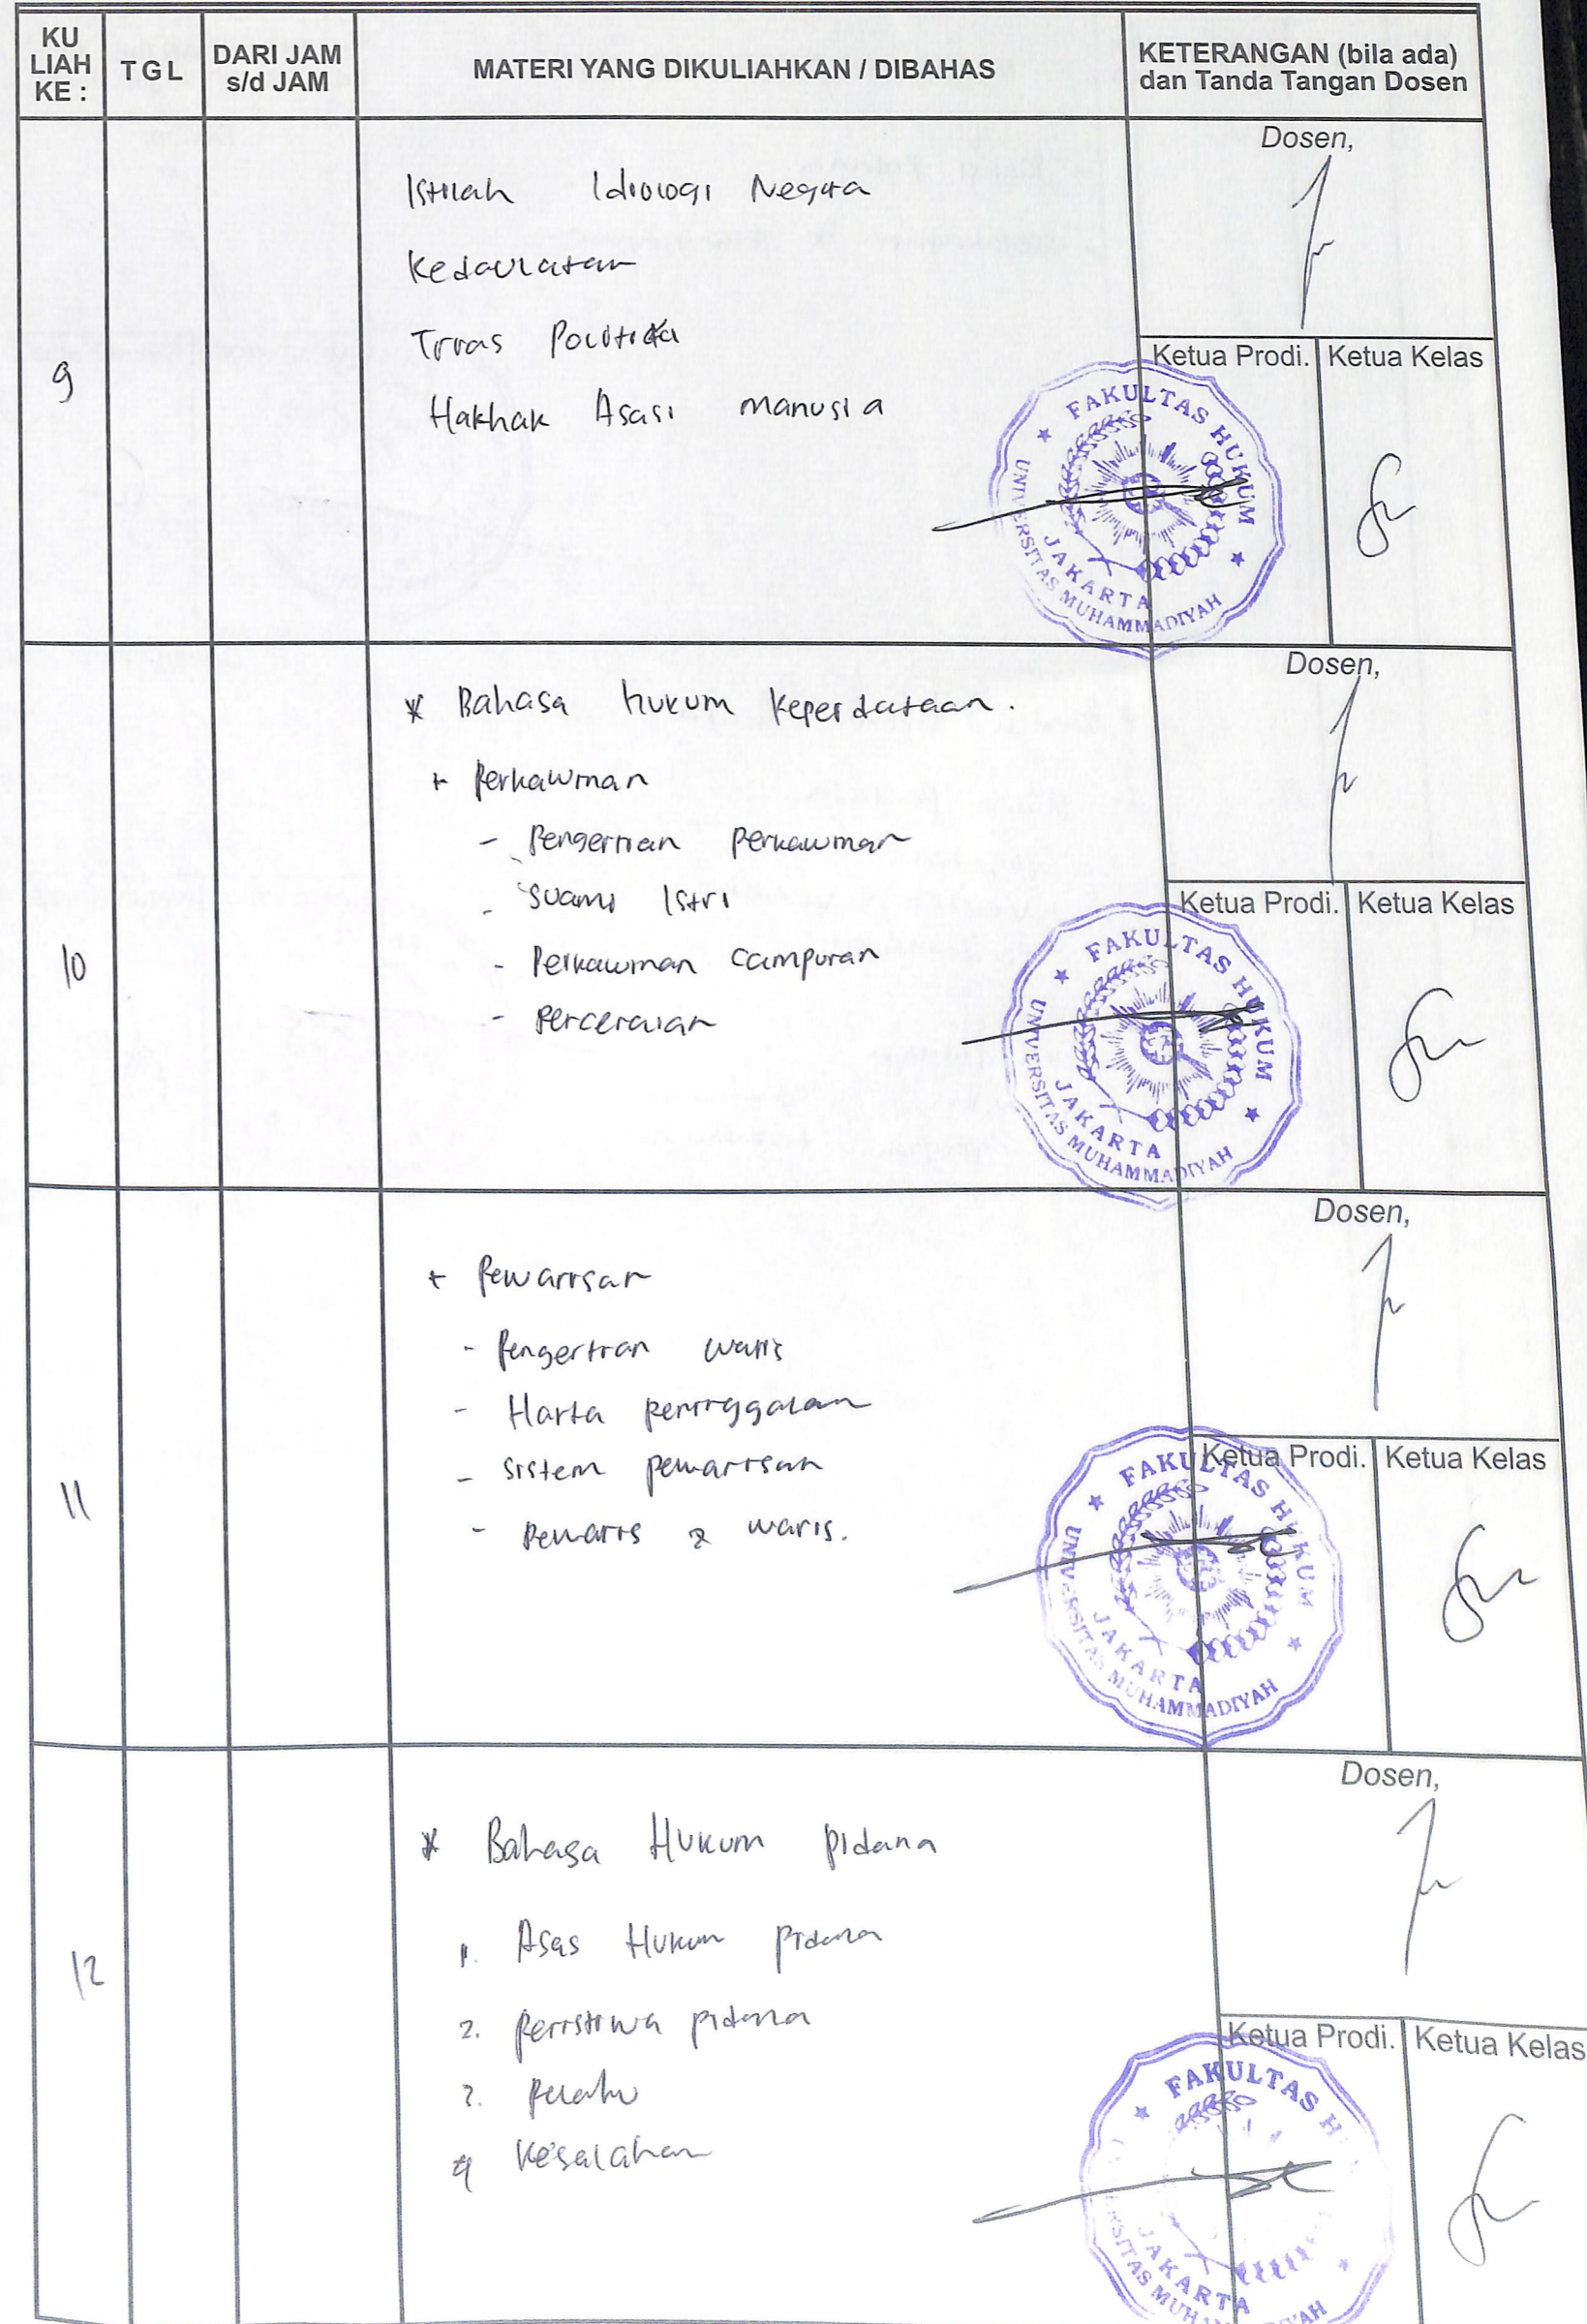 KU
LIAH
KE :
TGL
DARI JAM
s/d JAM
MATERI YANG DIKULIAHKAN / DIBAHAS
KETERANGAN (bila ada)
dan Tanda Tangan Dosen
9
Istilah Idiologi Negara
Kedaulatan
Trias Politika
Hakhak Asasi Manusia
Dosen,
Ketua Prodi. Ketua Kelas
FAKULTAS HUKUM
UNIVERSITAS MUHAMMADIYAH
JAKARTA
10
* Bahasa hukum keperdataan.
+ Perkawinan
- Pengertian Perkawinan
- Suami Istri
- Perkawinan Campuran
- Perceraian
Dosen,
Ketua Prodi. Ketua Kelas
FAKULTAS HUKUM
UNIVERSITAS MUHAMMADIYAH
JAKARTA
11
+ Pewarisan
- Pengertian waris
- Harta peninggalan
- Sistem pewarisan
- Pewaris & waris.
Dosen,
Ketua Prodi. Ketua Kelas
FAKULTAS HUKUM
UNIVERSITAS MUHAMMADIYAH
JAKARTA
12
* Bahasa Hukum Pidana
1. Asas Hukum Pidana
2. Peristiwa pidana
3. Pelaku
4 Kesalahan
Dosen,
Ketua Prodi. Ketua Kelas
FAKULTAS H
ERSITAS MUHAMMADIYAH
JAKARTA